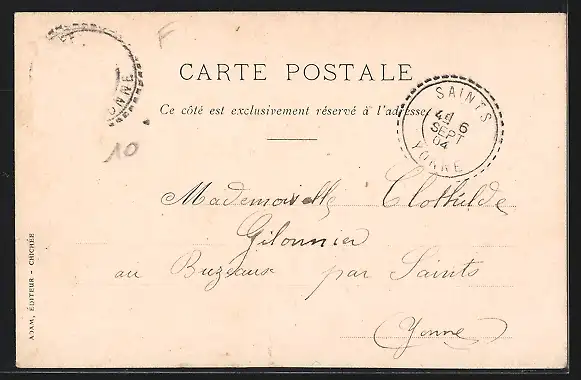 F
CARTE POSTALE
Ce côté est exclusivement réservé à l'adresse
SAINTS
6
SEPT
04
YONNE
YONNE
10
Mademoiselle Clothilde
Gilonnier
au Buzeaux par Saints
(Yonne)
ADAM, ÉDITEUR - CHICHÉE